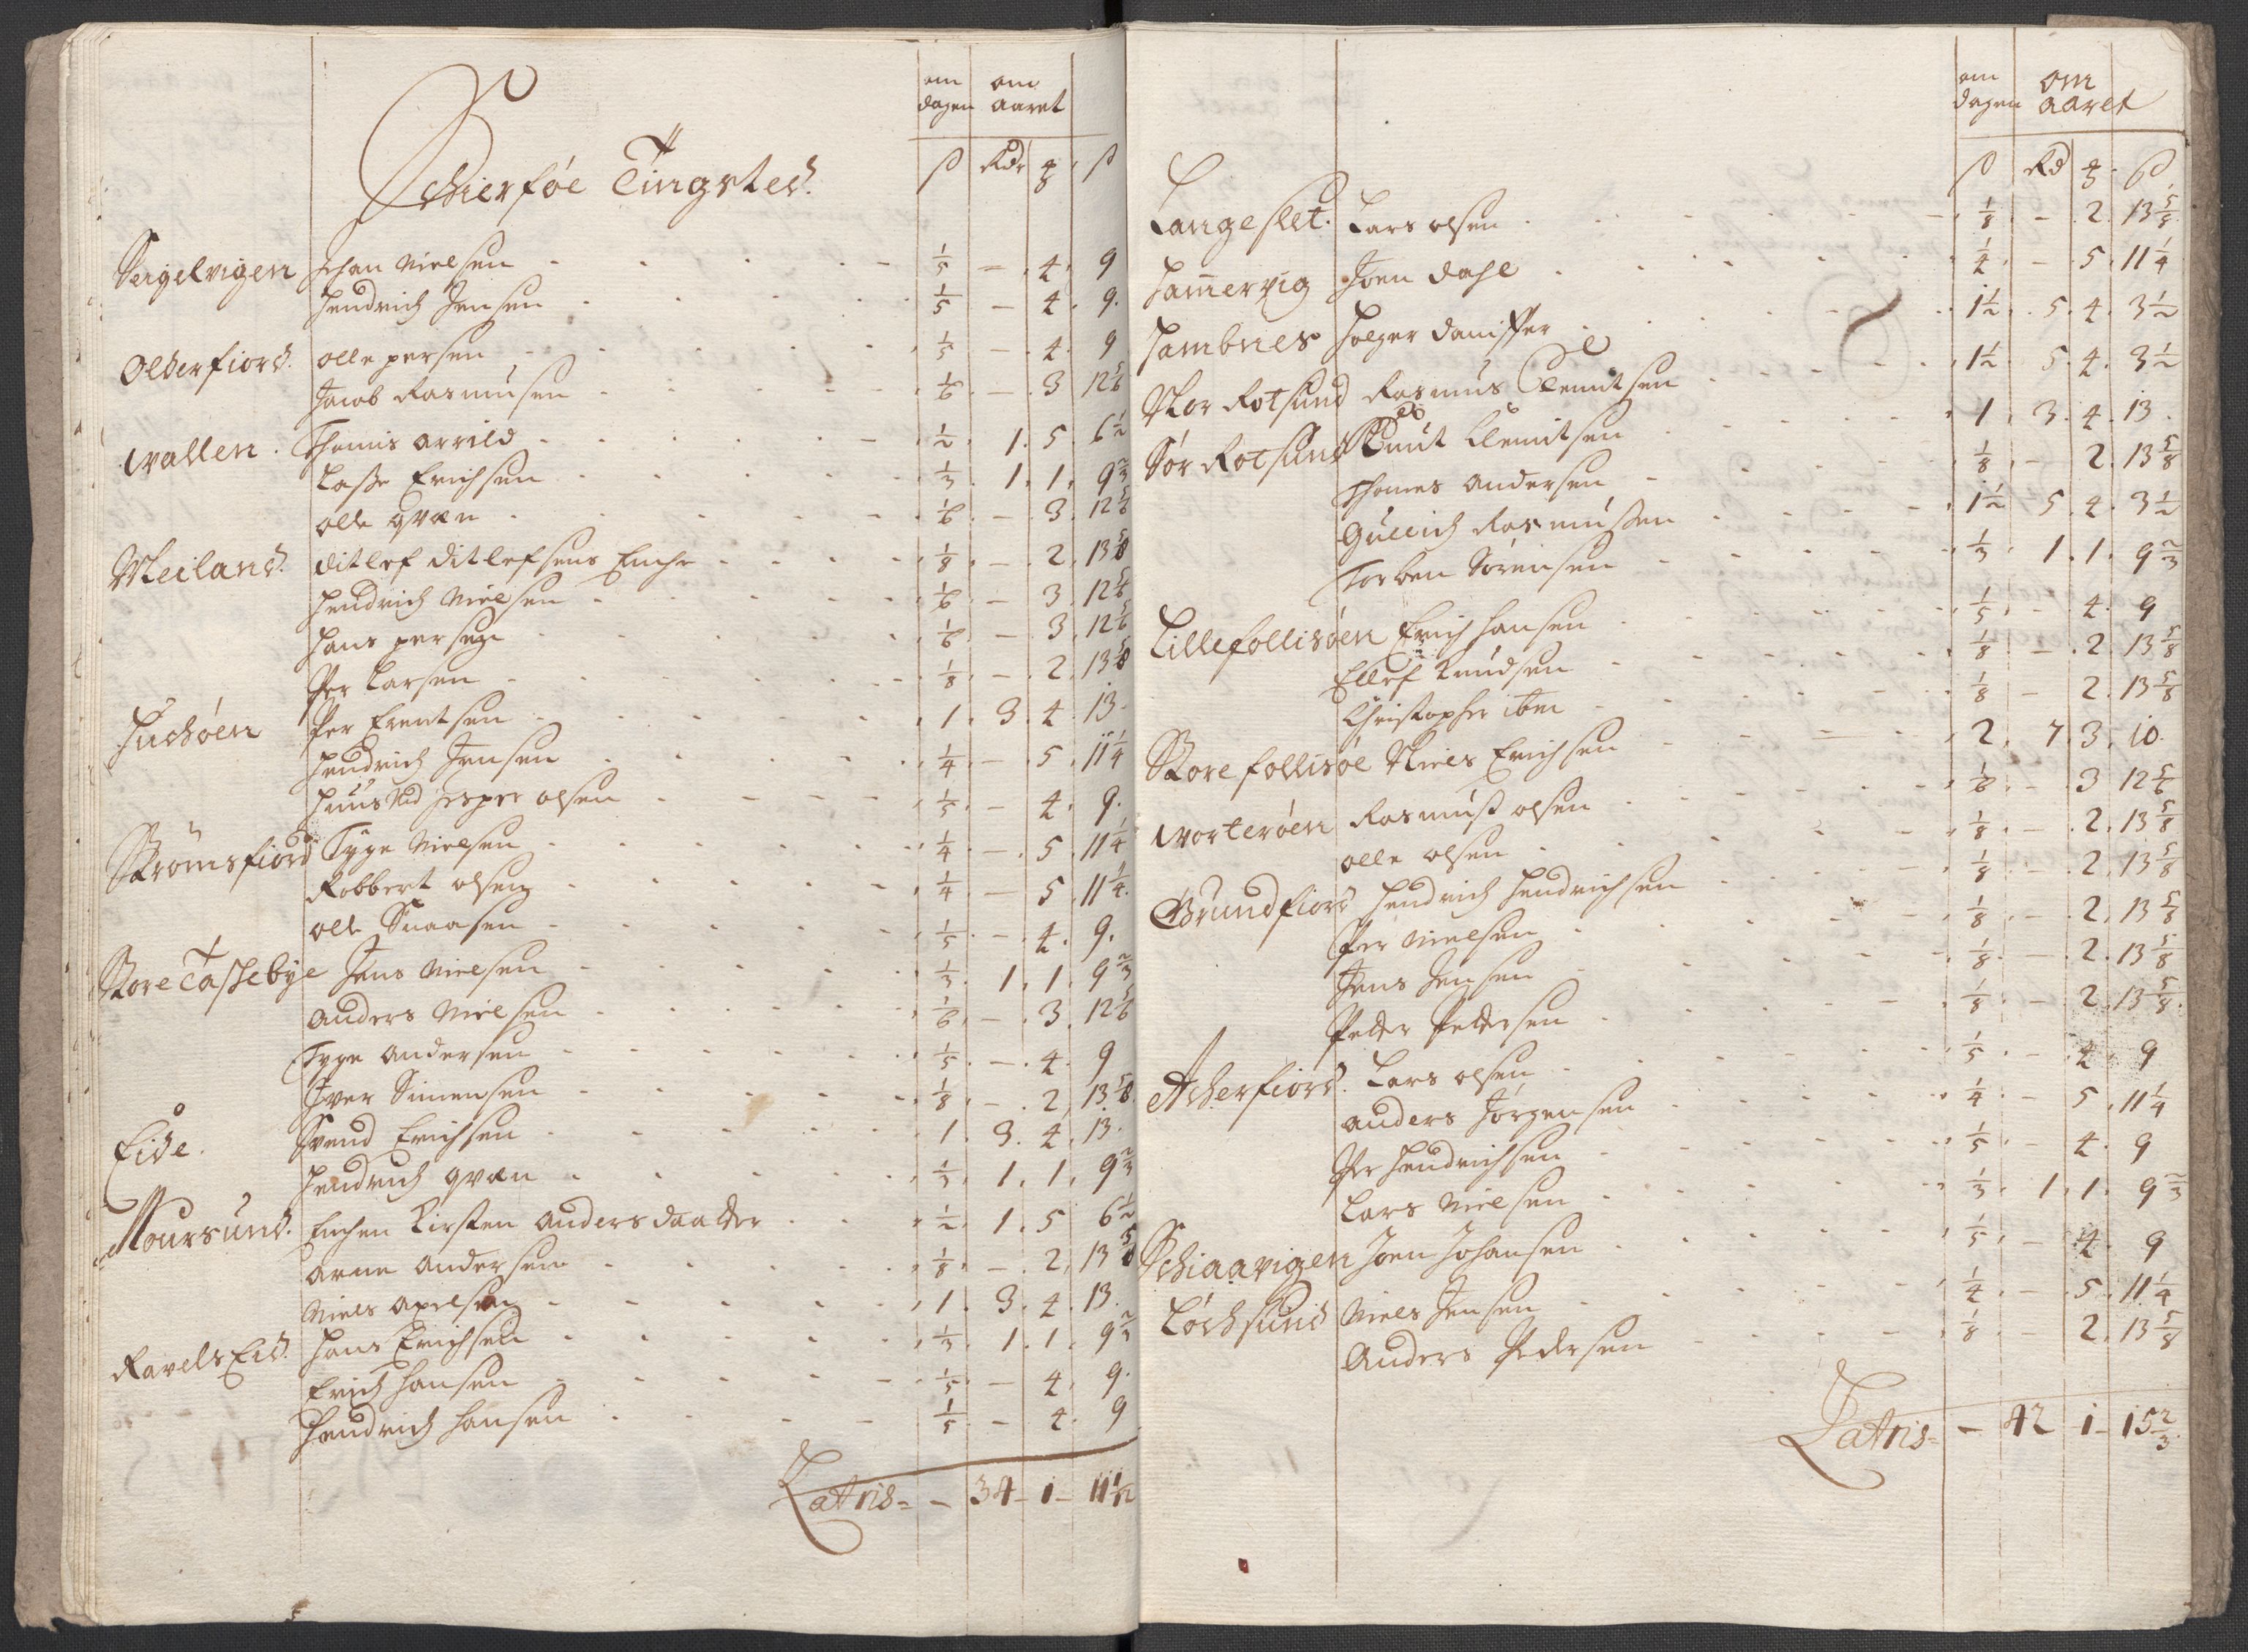 om om
dagen aaret
Schierføe Tingsted.
ß Rdr ß
Sergelvigen Johan Nielsen - 1/5 - 4. 9
Hendrich Jensen 1/5 - 4. 9.
Olderfiord. Olle persen 1/5 - 4. 9
Jacob Rasmusen 1/6 - 3 12 5/6
Wallen. Thomis Arrild 1/2 1. 5. 6 1/2
Lasse Erichsen 1/3 1. 1. 9 2/3
Olle qvæn 1/6 - 3. 12 5/6
Meiland. Ditlef Ditlefsens Enche 1/8 - 2. 13 5/8
Hendrich Nielsen 1/6 - 3. 12 5/6
Hans persen 1/6 - 3. 12 5/6
Per Larsen 1/8 - 2. 13 5/8
Huchøen Per Erentsen 1. 3. 4. 13.
Hendrich Jensen 1/4 - 5. 11 1/4
Huus Md Jesper olsen 1/5 - 4. 9.
Strømsfiord Tyge Nielsen 1/4 - 5. 11 1/4
Robbert olsen 1/4 - 5. 11 1/4.
Olle Knaasen 1/5 - 4. 9.
Store Tassebye Jens Nielsen 1/3 1. 1. 9 2/3
Anders Nielsen 1/6 - 3. 12 5/6
Tyge Andersen 1/5 - 4. 9
Iver Simensen 1/8 - 2. 13 5/8.
Eide. Svend Erichsen 1. 3. 4. 13.
Hendrich qvæn 1/3 1. 1. 9 2/3
Moursund. Enchen Kirsten Andersdaatter 1/2 1. 5 6 1/2
Arne Andersen 1/8 - 2. 13 5/8
Niels Axelsen 1. 3. 4. 13.
Ravels Eid. Hans Erichsen 1/3 1. 1. 9 2/3
Erich Hansen 1/5 - 4. 9.
Hendrich Hansen 1/5 - 4. 9
Latris = - 34 - 1 - 11 1/12
om om
dagen aaret
ß Rd ß
Langeslet. Lars olsen 1/8 - 2. 13 5/8.
Hammervig Joen Dahl 1/4 - 5. 11 1/4
Hambnes Holger Daniffer 1 1/2 5. 4. 3 1/2
Nor Rotsund Rasmus Clemitsen 1 1/2 5. 4. 3 1/2
Sør Rotsund Knut Clemitsen 1. 3. 4. 13.
Thomes Andersen 1/8 - 2. 13 5/8
Gullich Rasmussen 1 1/2 5. 4. 3 1/2
Torben Sørensen 1/3 1. 1. 9 2/3
Lillefollisøen Erich Hansen 1/5 - 4. 9
Ellef Knudsen 1/8 - 2. 13 5/8
Christopher ibm 1/8 - 2. 13 5/8
Store follisøe Niels Erichsen 2. 7. 3. 10.
Worterøen Rasmuss olsen 1/6 - 3 12 5/6
Olle olsen 1/8 - 2. 13 5/8
Grundfiord Hendrich Hendrichsen 1/8 - 2. 13 5/8
Per Nielsen 1/8 - 2. 13 5/8
Jens Jensen 1/8 - 2. 13 5/8
Peder Pedersen 1/8 - 2. 13 5/8.
Acherfiord. Lars olsen 1/5 - 4. 9
Anders Jørgensen 1/4 - 5. 11 1/4
Per Hendrichsen 1/5 - 4. 9
Lars Nielsen 1/3 1. 1. 9 2/3
Schiaavigen Joen Johansen 1/5 - 4. 9
Løchsund Niels Jensen 1/4 - 5. 11 1/4
Anders Pedersen 1/8 - 2. 13 5/8
Latris = - 42 1 - 15 2/3.